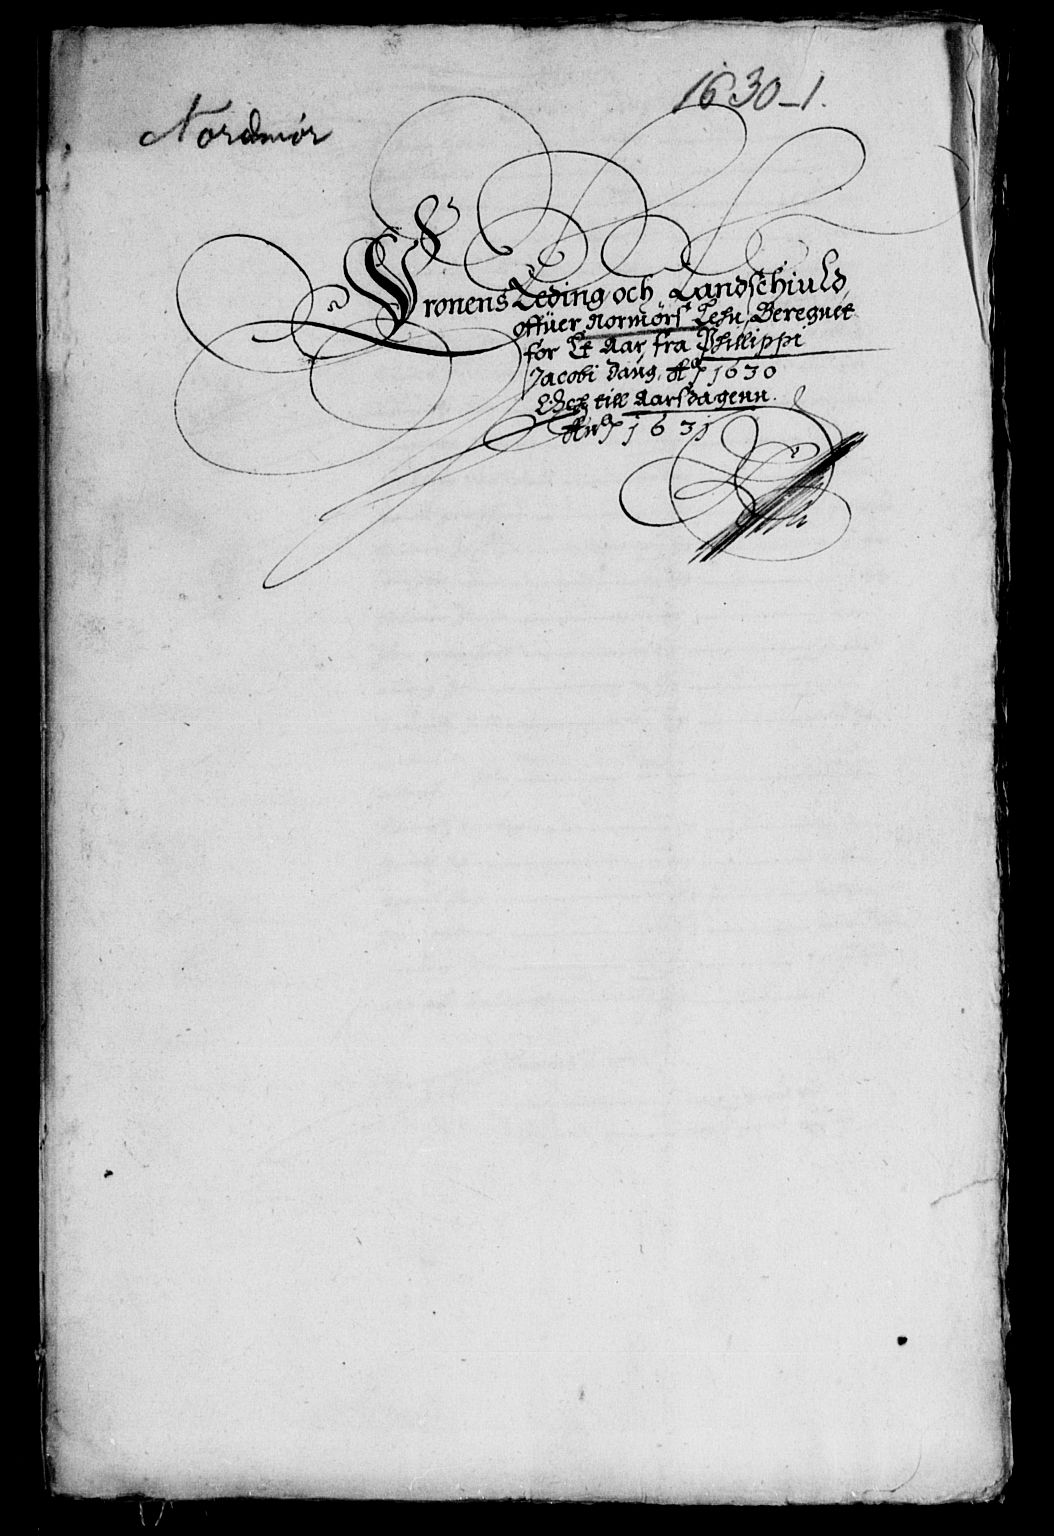 1630-1.
Nordmør
Cronens Leding och Landschiuld
offuer Normørs Lehn, Beregnet
for Et Aar, fra Phillippi
Jacobi Daug. Aō 1630
till Aarsdagenn.
Aō 1631